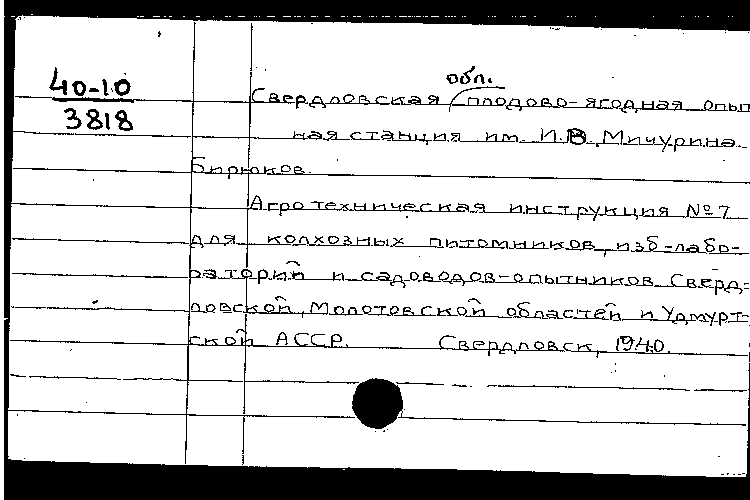 40-10
3818
обл.
Свердловская плодово-ягодная опыт
ная станция им. И.В. Мичурина
Бирюков.
Агротехническая инструкция № 7
для колхозных питомников, изб-лабо-
раторий и садоводов-опытников Сверд-
ловской, Молотовской областей и Удмурт-
ской АССР. Свердловск, 1940.